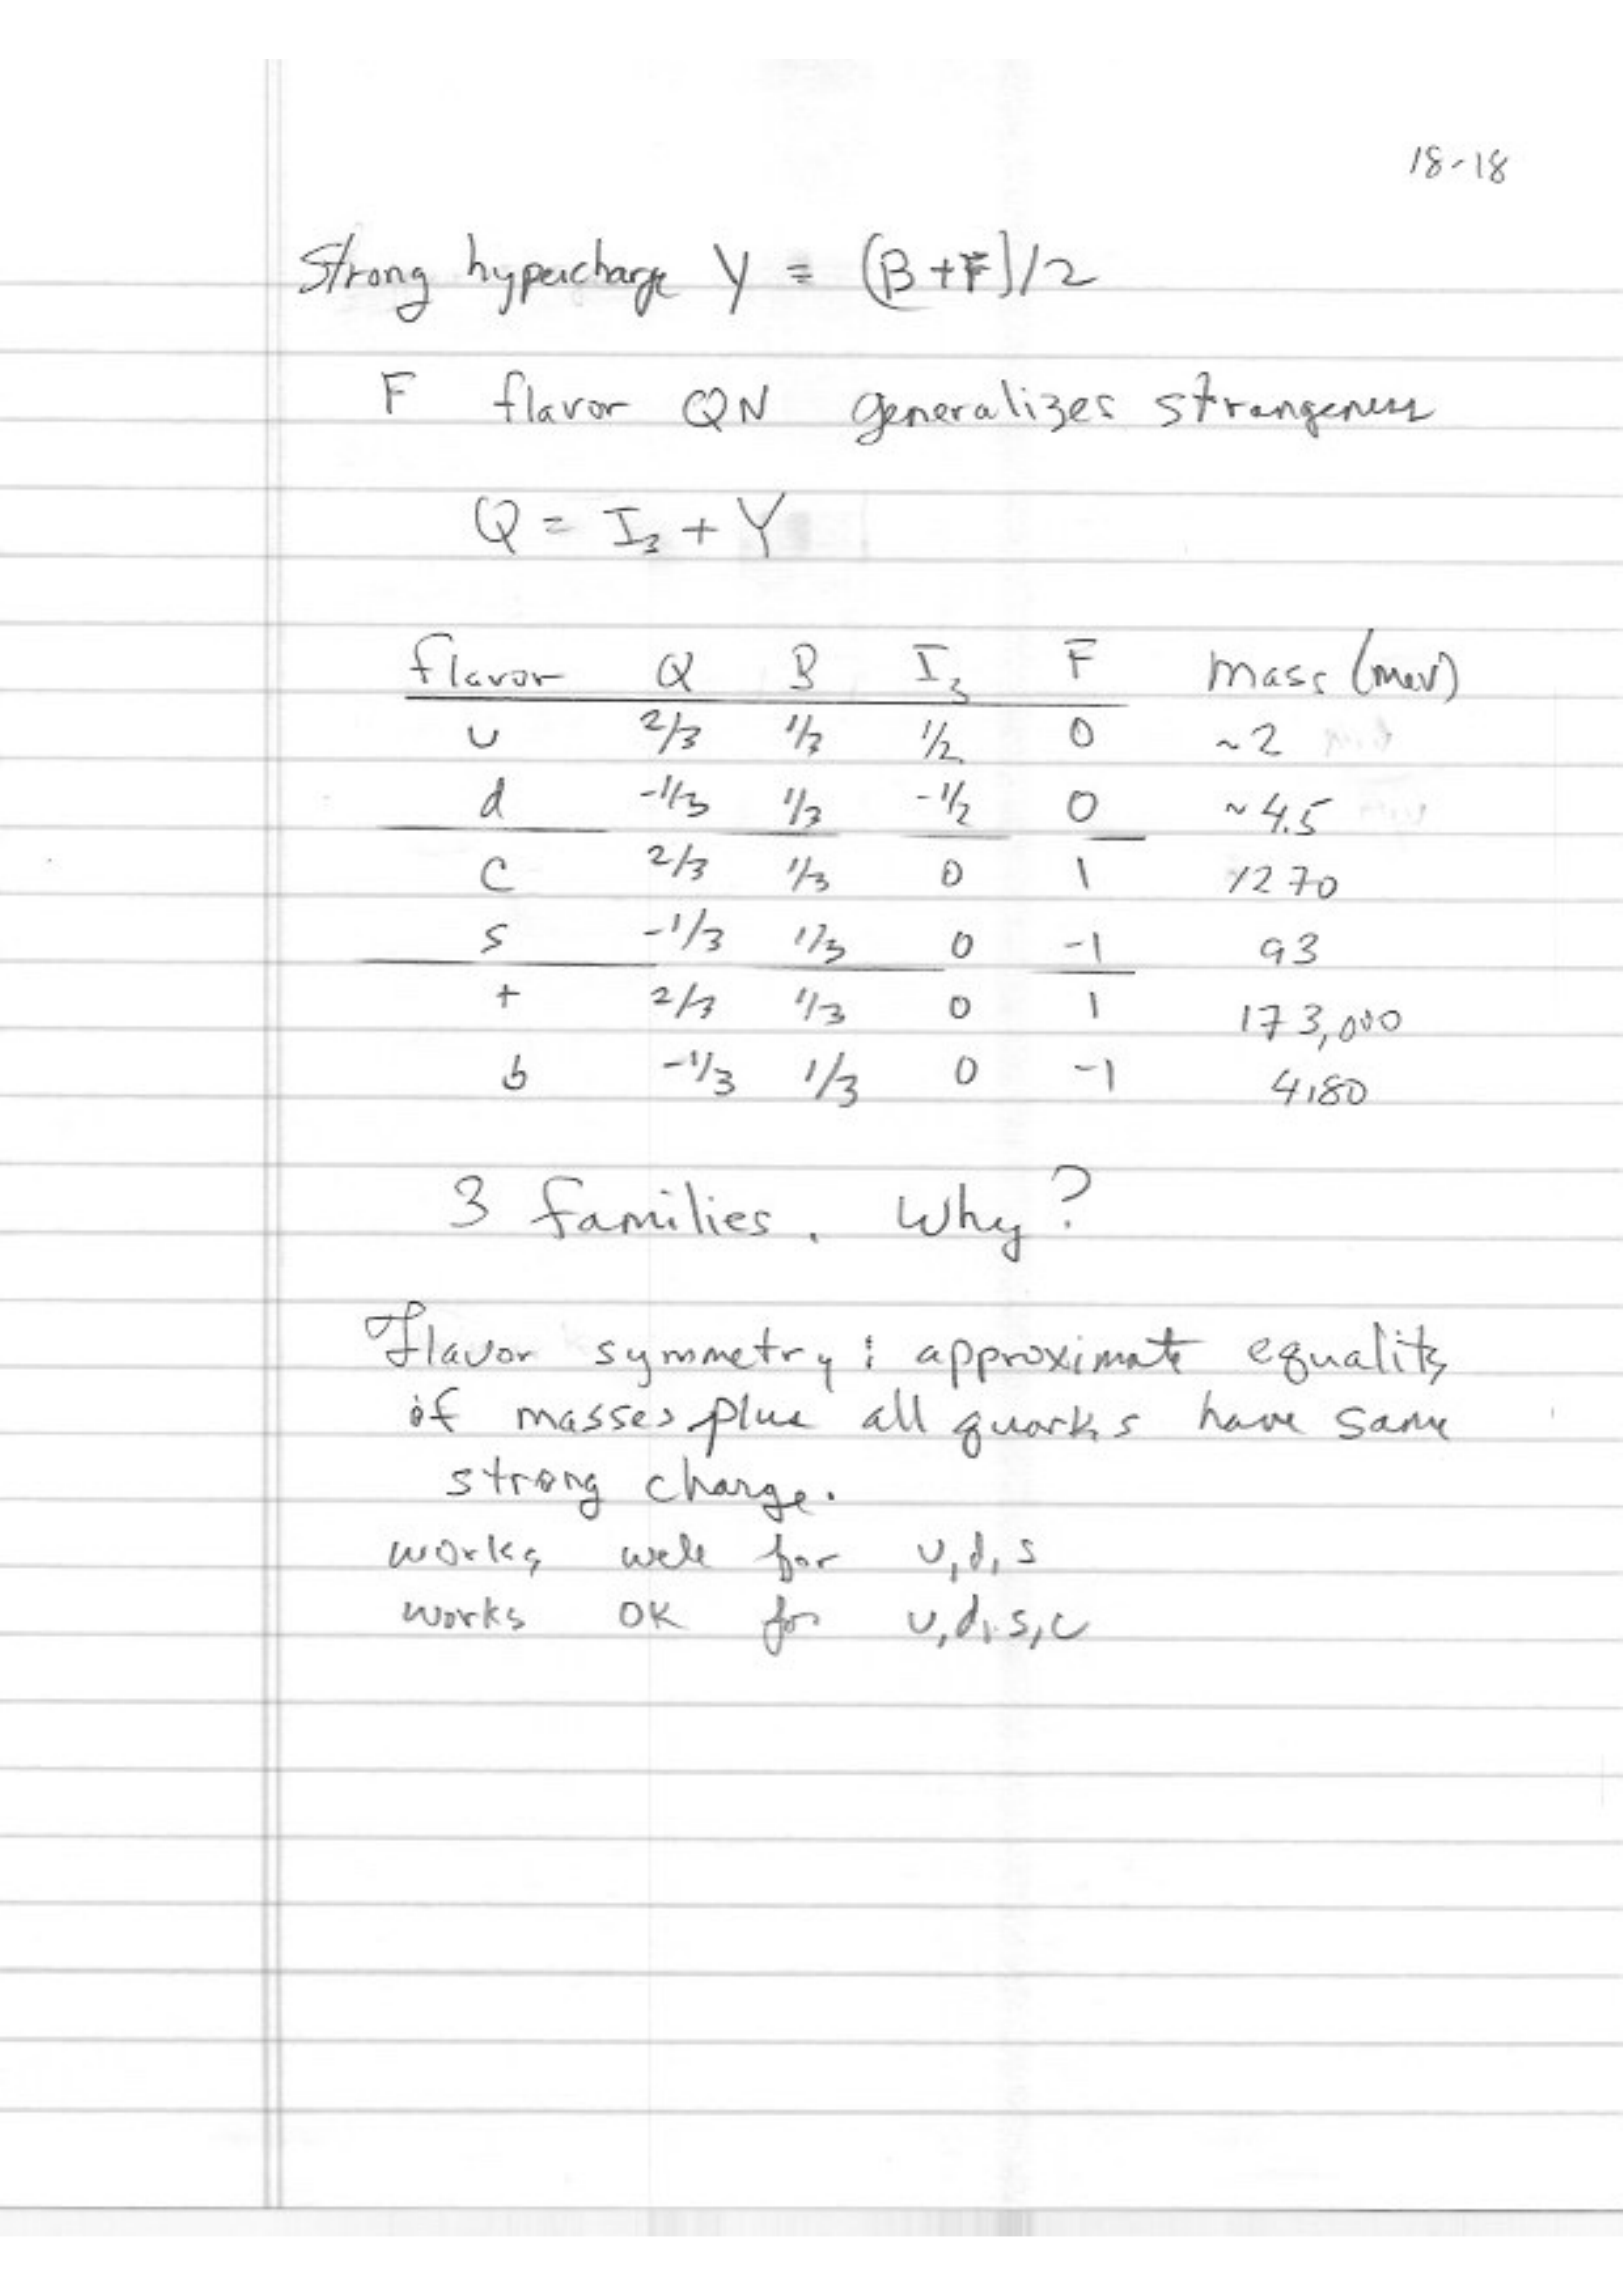 18-18
Strong hypercharge Y = (B+F)/2
F flavor QN generalizes strangeness
Q = I₃ + Y
flavor Q B I₃ F mass (MeV)
u 2/3 1/3 1/2 0 ~2
d -1/3 1/3 -1/2 0 ~4.5
c 2/3 1/3 0 1 1270
s -1/3 1/3 0 -1 93
t 2/3 1/3 0 1 173,000
b -1/3 1/3 0 -1 4180
3 families. Why?
Flavor symmetry: approximate equality
of masses plus all quarks have same
strong charge.
works well for u,d,s
works OK for u,d,s,c